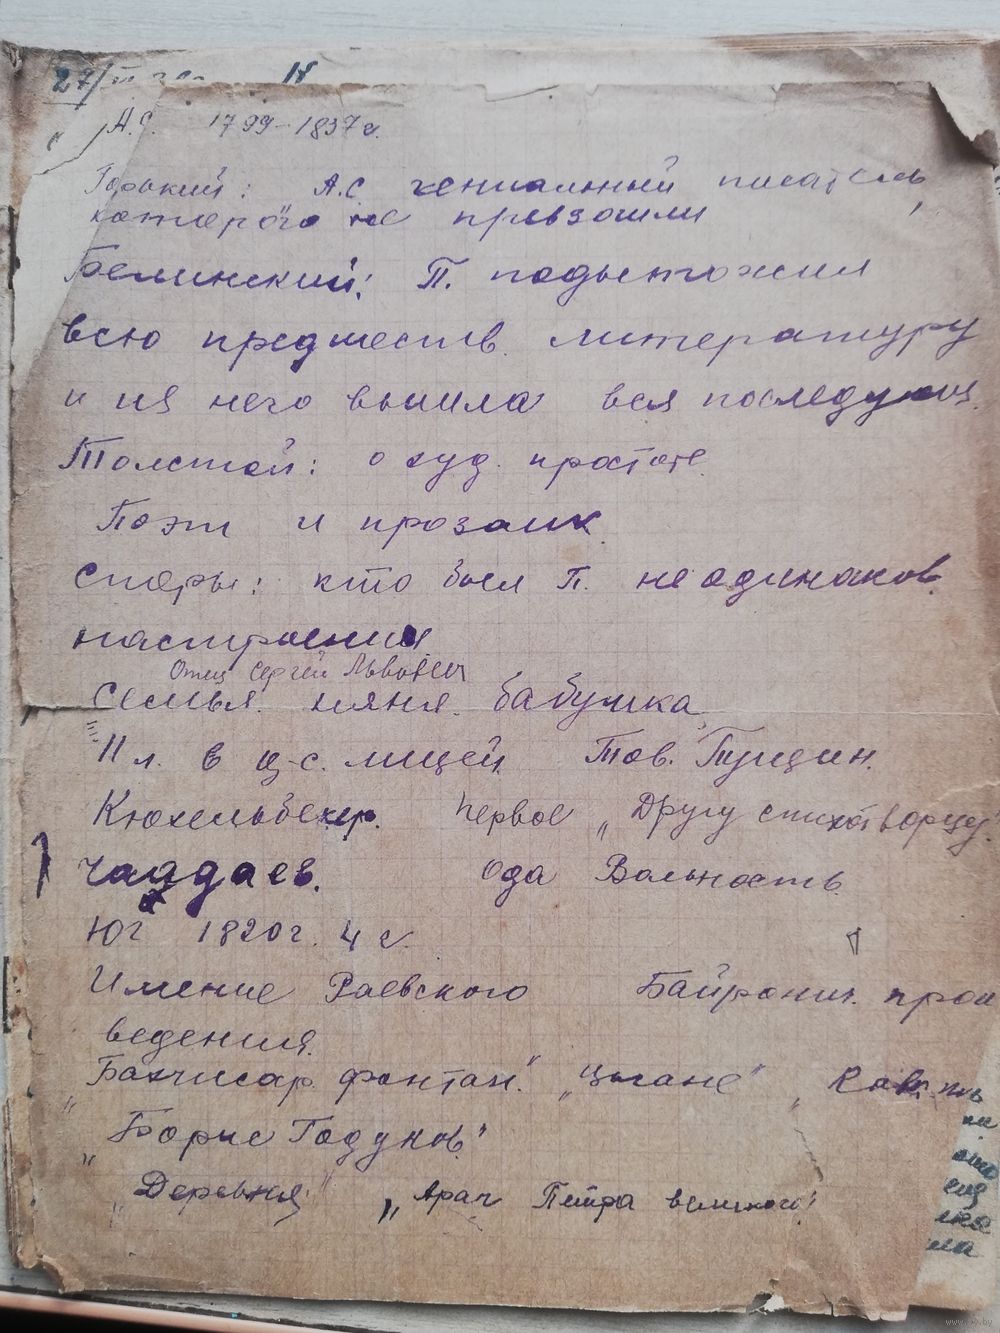 27/III
А.С. 1799-1837 г.
Горький: А.С. гениальный писатель,
которого не превзошли
Белинский: П. подытожил
всю предшеств. литературу
и из него вышла вся последующ.
Толстой: о худ. простоте.
Поэт и прозаик
Споры: кто был П. не одинаков.
настроения
Отец Сергей Львович
Семья. няня. бабушка.
II л. в ц-с. лицей. Тов. Пущин.
Кюхельбекер. Первое „Другу стихотворцу.
Чаадаев. ода Вольность.
Юг 1820 г. 4 г.
Имение Раевского Байронич. прои
ведения.
„Бахчисар. фонтан." „Цыгане" „Кавк. пл
„Борис Годунов."
„Деревня" „Арап Петра великого"